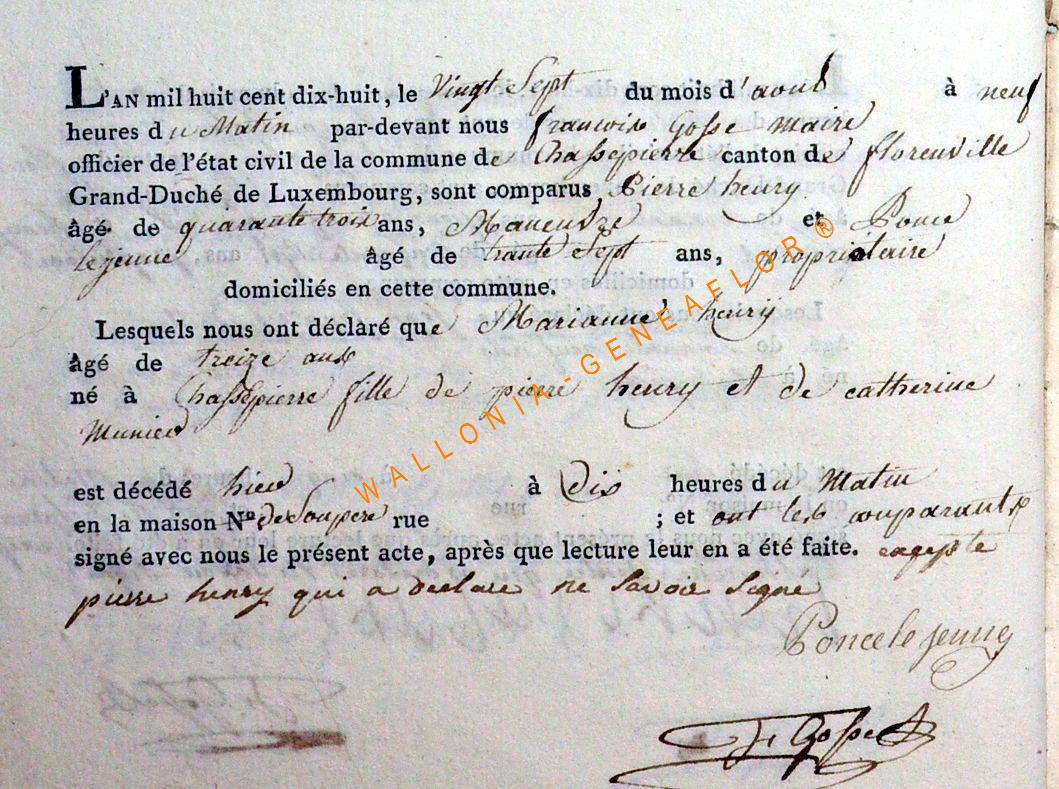 L'AN mil huit cent dix-huit, le vingt Sept du mois d'aout à neuf
heures du Matin par-devant nous francoise Gosse Maire
officier de l'état civil de la commune de Chassepierre canton de florenville
Grand-Duché de Luxembourg, sont comparus Pierre henry
âgé de quarante trois ans, Maneuvre et Ponce
lejeune âgé de trante Sept ans, propriataire
domiciliés en cette commune.
Lesquels nous ont déclaré que Marianne henry
âgé de treize ans
né à Chassepierre fille de pierre henry et de catherine
Munier
est décédé hier à Dix heures du Matin
en la maison No de Sonpere rue ; et ont les comparants
signé avec nous le présent acte, après que lecture leur en a été faite. excepte
pierre henry qui a declare ne savoir signe
Poncelejeune
F Gosse
WALLONIA-GENEAFLOR®